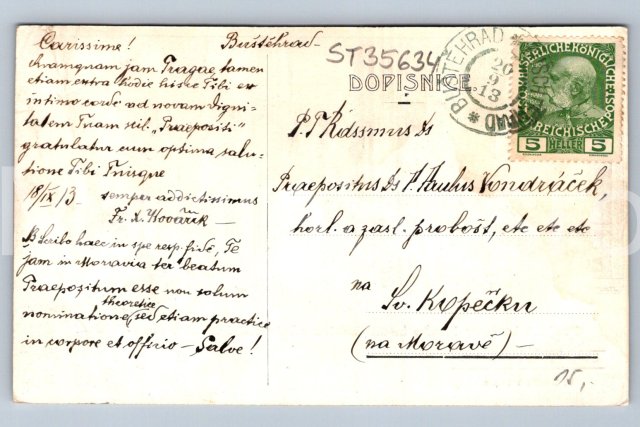 Carissime! Buštěhrad
quamquam jam Pragae, tamen
etiam extra hodie hisce Tibi ex
intimo corde ad novam digni-
tatem Tuam scil. "Praepositi"
gratulatur cum optima salu-
tione Tibi Tuisque
18/IX 13. semper addictissimus
Fr. X.
NB Scribo haec in spe resp. fide, Te
jam in Moravia ter beatum
Praepositum esse non solum
theoretice
nominatione sed etiam practice
in corpore et officio – Salve!
ST35634
DOPISNICE.
BUŠTĚHRAD
20
9
13
KAISERLICHE KÖNIGLICHE ÖSTERREICHISCHE POST
5 HELLER 5
P. T. Rdssmus Ds
Praepositus Ds P. Vondráček,
horl. a zasl. probošt, etc etc etc
na
Sv. Kopečku
(na Moravě)
15,